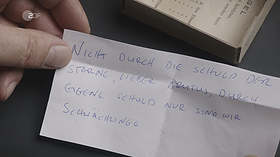 ZDF
GEL
NICHT DURCH DIE SCHULD DER
STERNE, LIEBER BRUTUS, DURCH
EIGENE SCHULD NUR SIND WIR
SCHWÄCHLINGE